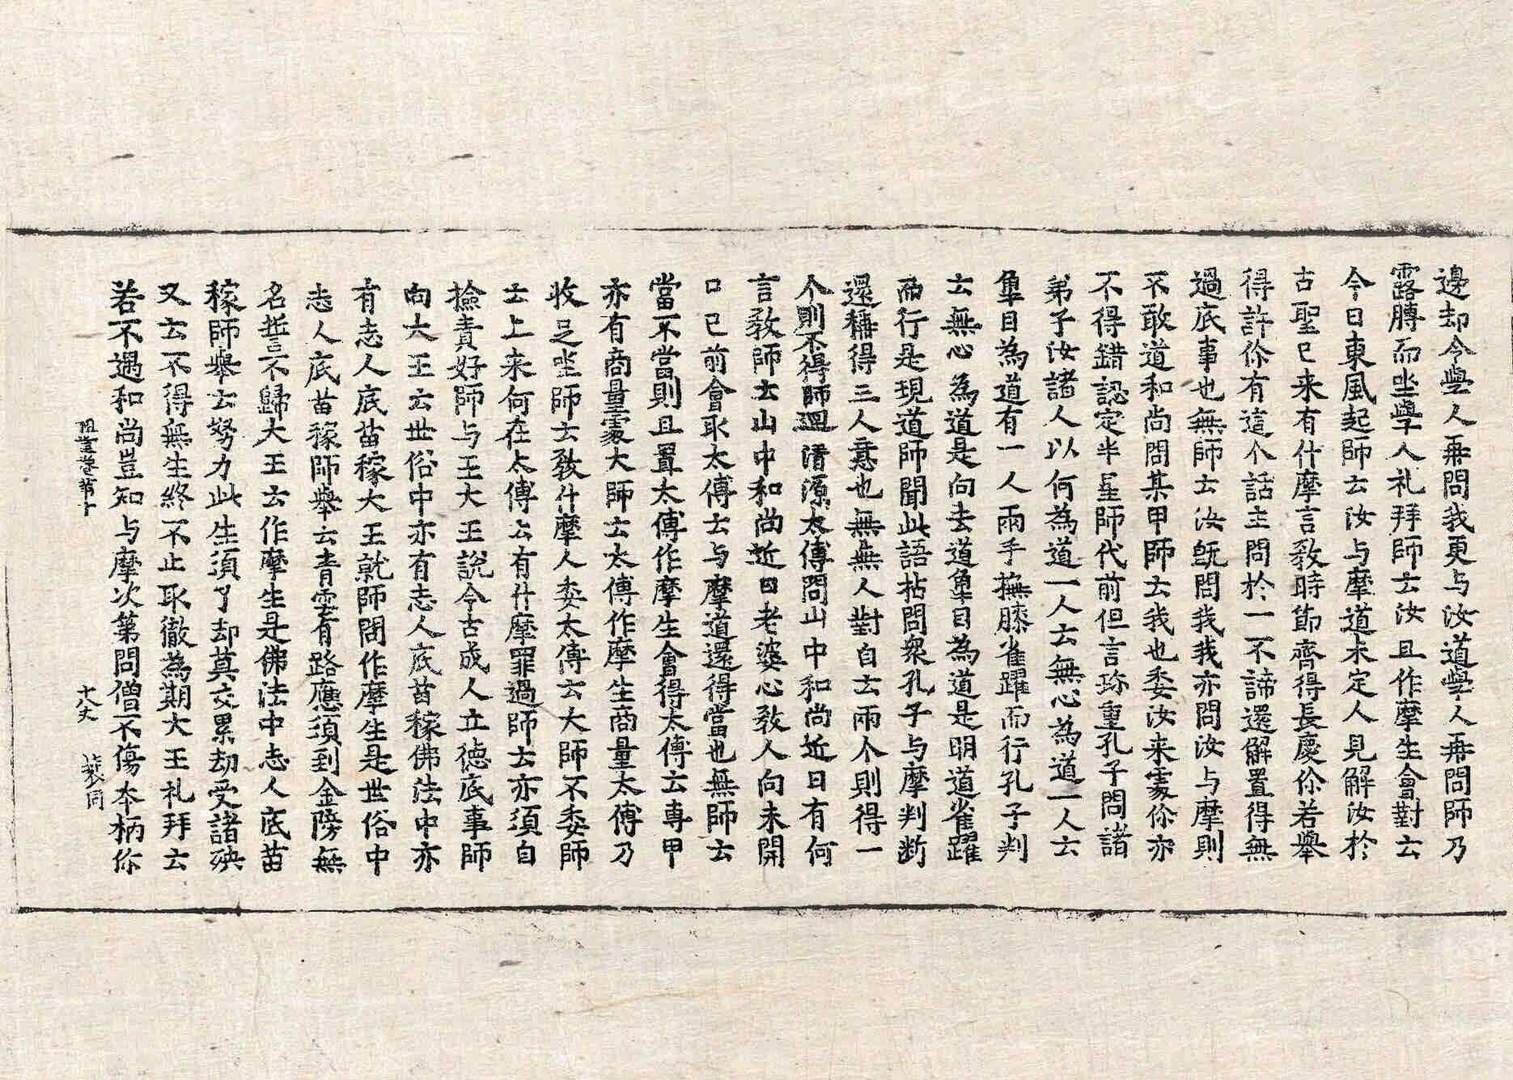 邊却令學人再問我更与汝道學人再問師乃
露膊而坐學人礼拜師云汝且作摩生會對云
今日東風起師云汝与摩道未定人見解汝於
古聖已来有什摩言教時節齊得長慶你若舉
得許你有這个話主問於一不諦還解置得無
過底事也無師云汝既問我我亦問汝与摩則
不敢道和尚問某甲師云我也委汝来處你亦
不得錯認定半星師代前但言珎重孔子問諸
弟子汝諸人以何為道一人云無心為道一人云
隼目為道有一人兩手撫膝雀躍而行孔子判
云無心為道是向去道隼目為道是明道雀躍
而行是現道師聞此語拈問衆孔子与摩判断
還稱得三人意也無無人對自云兩个則得一
个則不得師迴清源太傅問山中和尚近日有何
言教師云山中和尚近日老婆心教人向未開
口已前會取太傅云与摩道還得當也無師云
當不當則且置太傅作摩生會得太傅云專甲
亦有商量處大師云太傅作摩生商量太傅乃
收足坐師云教什摩人委太傅云大師不委師
云上来何在太傅云有什摩罪過師云亦須自
撿責好師与王大王說今古成人立德底事師
向大王云世俗中亦有志人底苗稼佛法中亦
有志人底苗稼大王就師問作摩生是世俗中
志人底苗稼師舉云青雲有路應須到金牓無
名誓不歸大王云作摩生是佛法中志人底苗
稼師舉云努力此生須了却莫交累劫受諸殃
又云不得無生終不止取徹為期大王礼拜云
若不遇和尚豈知与摩次第問僧不傷本柄你
祖堂卷第十　十八丈　裴同